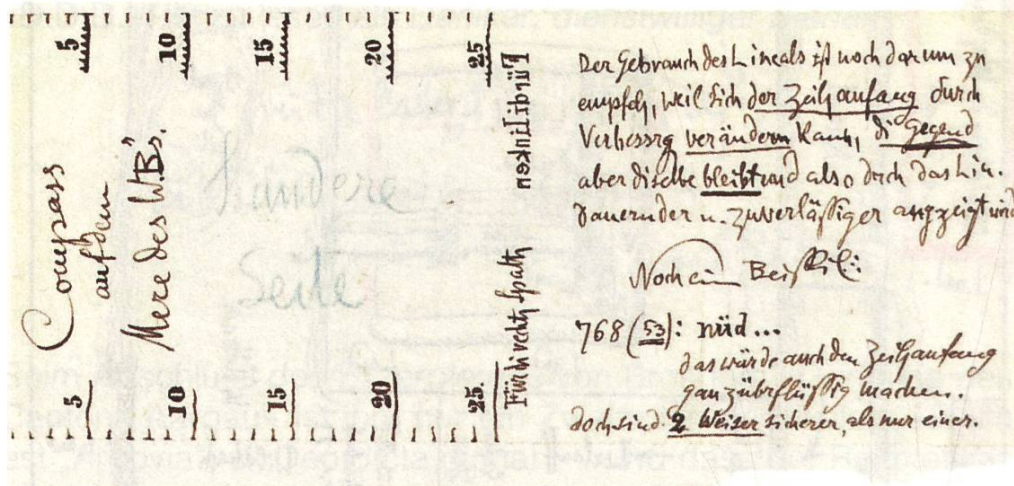 5 10 15 20 25
Compass
auf dem
Mere des WBs.
andere
Seite
5 10 15 20 25.
Für di linken
Für di rechte Spalth
Der Gebrauch des Lineals ist noch darum zu
empfeh, weil sich der Zeilhanfang durch
Verbessrg verändern kann, di Gegend
aber diselbe bleibt und also durch das Lin.
dauernder u. zuverläßiger angzeigt wird
Noch ein Beispil:
768 (53): nüd...
das würde auch den Zeilhanfang
ganz übrflüssig machen.
doch sind 2 Weiser sicherer, als nur einer.